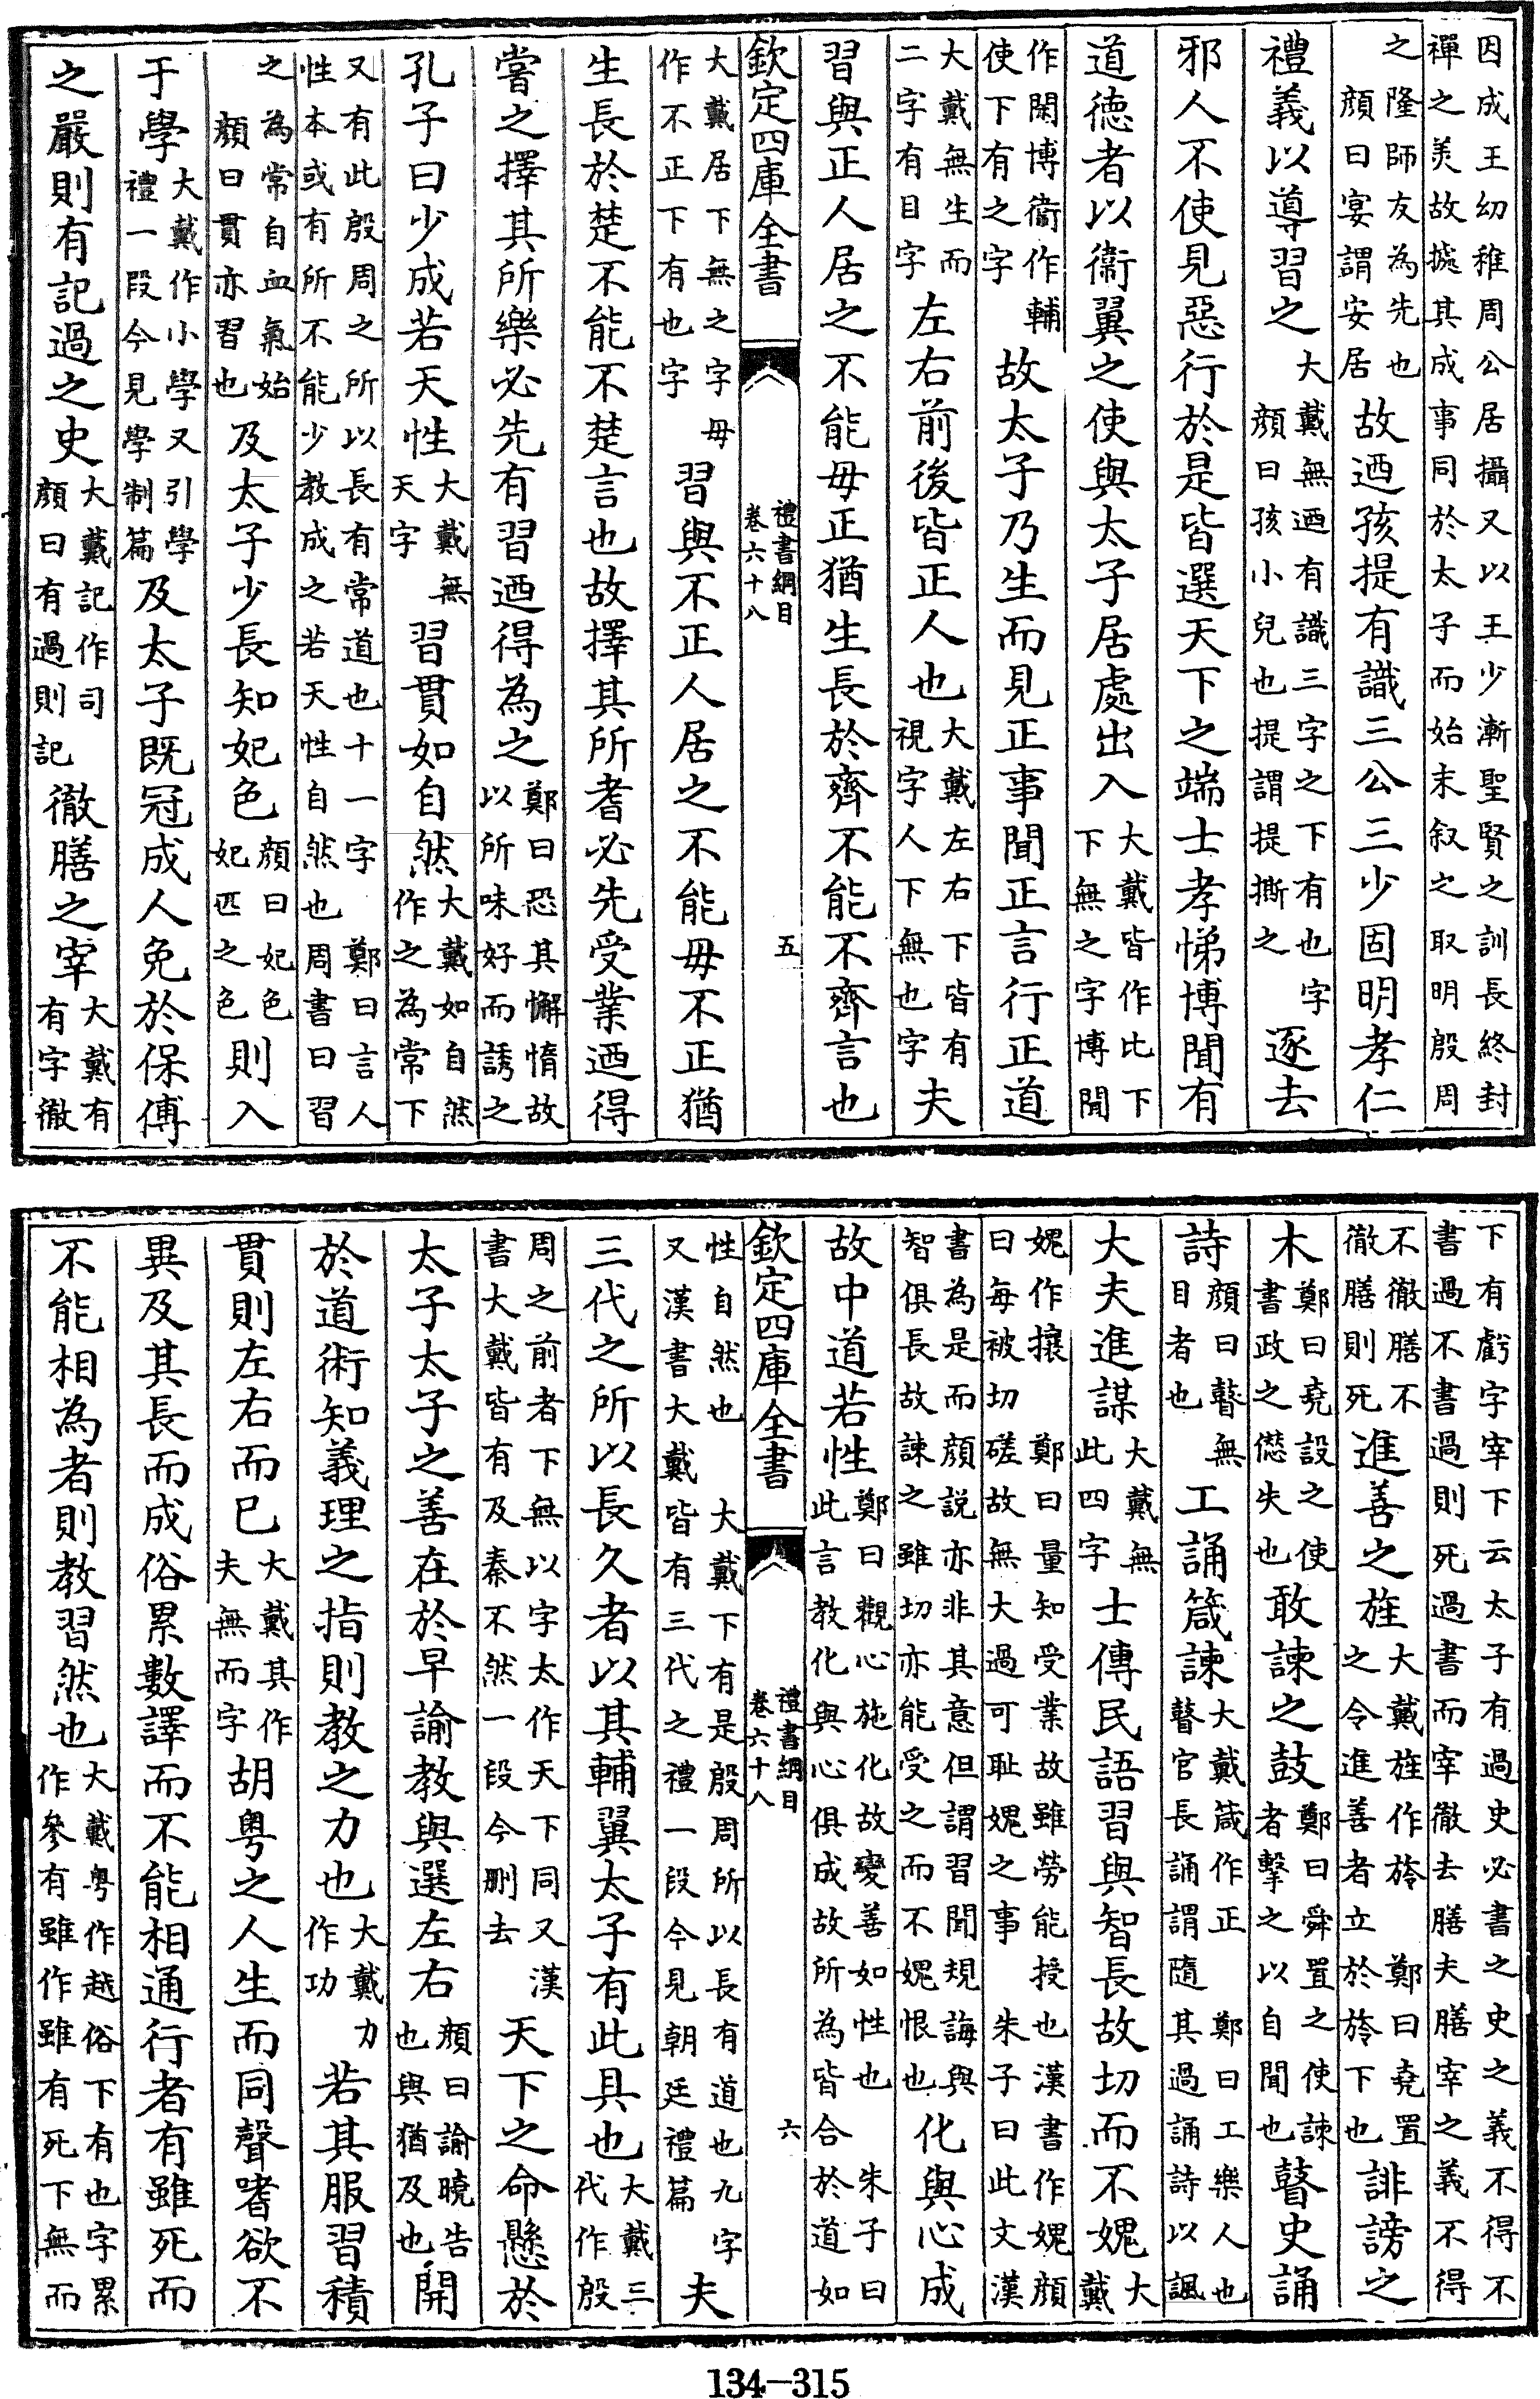 因成王幼稚周公居攝又以王少漸聖賢之訓長終封
禪之美故摭其成事同於太子而始末叙之取明殷周
之隆師友為先也顔曰宴謂安居故迺孩提有識三公三少固明孝仁
禮義以導習之大戴無迺有識三字之下有也字顔曰孩小兒也提謂提撕之逐去
邪人不使見惡行於是皆選天下之端士孝悌博聞有
道德者以衞翼之使與太子居處出入大戴皆作比下下無之字博聞
作閑博衞作輔使下有之字故太子乃生而見正事聞正言行正道
大戴無生而二字有目字左右前後皆正人也大戴左右下皆有視字人下無也字夫
習與正人居之不能毋正猶生長於齊不能不齊言也
欽定四庫全書
禮書綱目
卷六十八
五
大戴居下無之字毋作不正下有也字習與不正人居之不能毋不正猶
生長於楚不能不楚言也故擇其所耆必先受業迺得
嘗之擇其所樂必先有習迺得為之鄭曰恐其懈惰故以所味好而誘之
孔子曰少成若天性大戴無天字習貫如自然大戴如自然作之為常下
又有此殷周之所以長有常道也十一字鄭曰言人
性本或有所不能少教成之若天性自然也周書曰習
之為常自血氣始顔曰貫亦習也及太子少長知妃色顔曰妃色妃匹之色則入
于學大戴作小學又引學禮一段今見學制篇及太子既冠成人免於保傅
之嚴則有記過之史大戴記作司顔曰有過則記徹膳之宰大戴有有字徹
下有虧字宰下云太子有過史必書之史之義不得不
書過不書過則死過書而宰徹去膳夫膳宰之義不得
不徹膳不徹膳則死進善之旌大戴旌作旍之令進善者立於旍下也鄭曰堯置誹謗之
木鄭曰堯設之使書政之愆失也敢諫之鼓鄭曰舜置之使諫者擊之以自聞也瞽史誦
詩顔曰瞽無目者也工誦箴諫大戴箴作正鄭曰工樂人也瞽官長誦謂隨其過誦詩以諷
大夫進謀大戴無此四字士傳民語習與智長故切而不媿大戴
媿作攘鄭曰量知受業故雖勞能授也漢書作媿顔
曰每被切磋故無大過可耻媿之事朱子曰此文漢
書為是而顔説亦非其意但謂習聞規誨與智俱長故諫之雖切亦能受之而不媿恨也化與心成
故中道若性鄭曰觀心施化故變善如性也朱子曰此言教化與心俱成故所為皆合於道如
欽定四庫全書
禮書綱目
卷六十八
六
性自然也大戴下有是殷周所以長有道也九字又漢書大戴皆有三代之禮一段今見朝廷禮篇夫
三代之所以長久者以其輔翼太子有此具也大戴三代作殷
周之前者下無以字太作天下同又漢書大戴皆有及秦不然一段今删去天下之命懸於
太子太子之善在於早諭教與選左右顔曰諭曉告也與猶及也開
於道術知義理之指則教之力也大戴力作功若其服習積
貫則左右而已大戴其作夫無而字胡粤之人生而同聲嗜欲不
異及其長而成俗累數譯而不能相通行者有雖死而
不能相為者則教習然也大戴粤作越俗下有也字累作參有雖作雖有死下無而
134–315